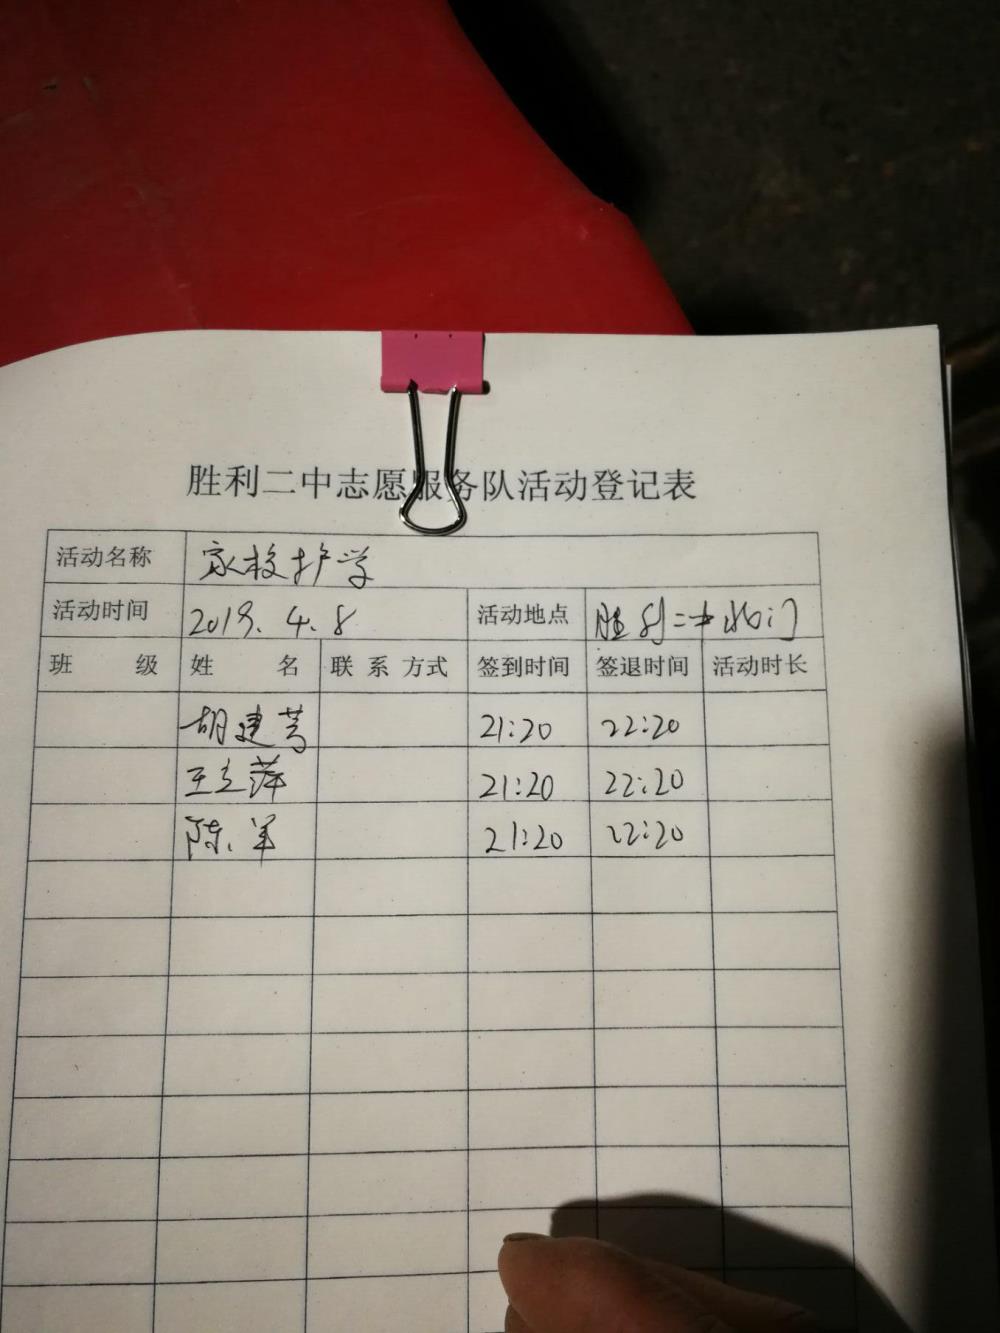 胜利二中志愿服务队活动登记表
活动名称 家校护学
活动时间 2019.4.8 活动地点 胜利二中北门
班 级 姓 名 联系方式 签到时间 签退时间 活动时长
胡建 21:20 22:20
王立萍 21:20 22:20
陈军 21:20 22:20